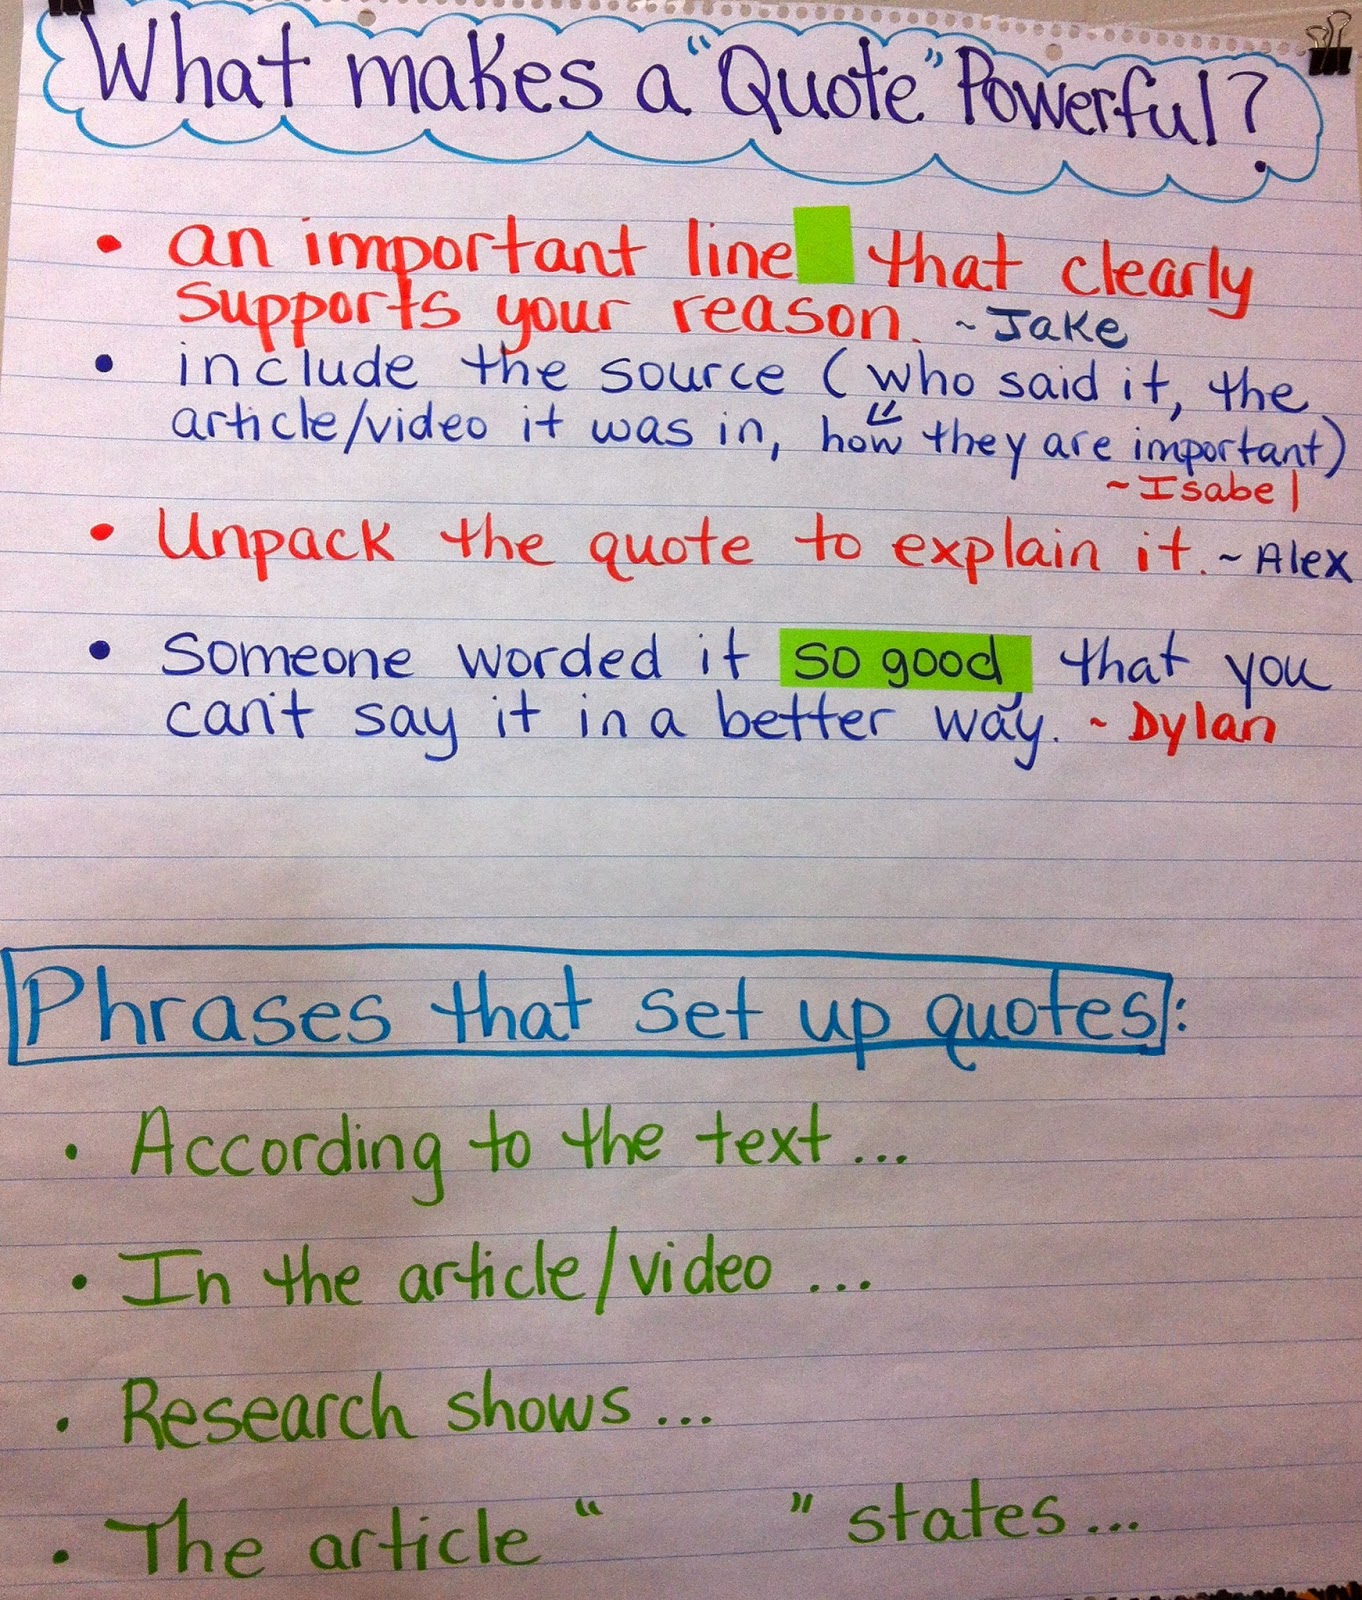 What makes a "Quote" Powerful?
• an important line that clearly
supports your reason. ~Jake
• include the source (who said it, the
article/video it was in, how they are important)
~Isabel
• Unpack the quote to explain it. ~Alex
• Someone worded it so good that you
can't say it in a better way. ~Dylan
Phrases that set up quotes:
• According to the text...
• In the article/video...
• Research shows...
• The article " " states...